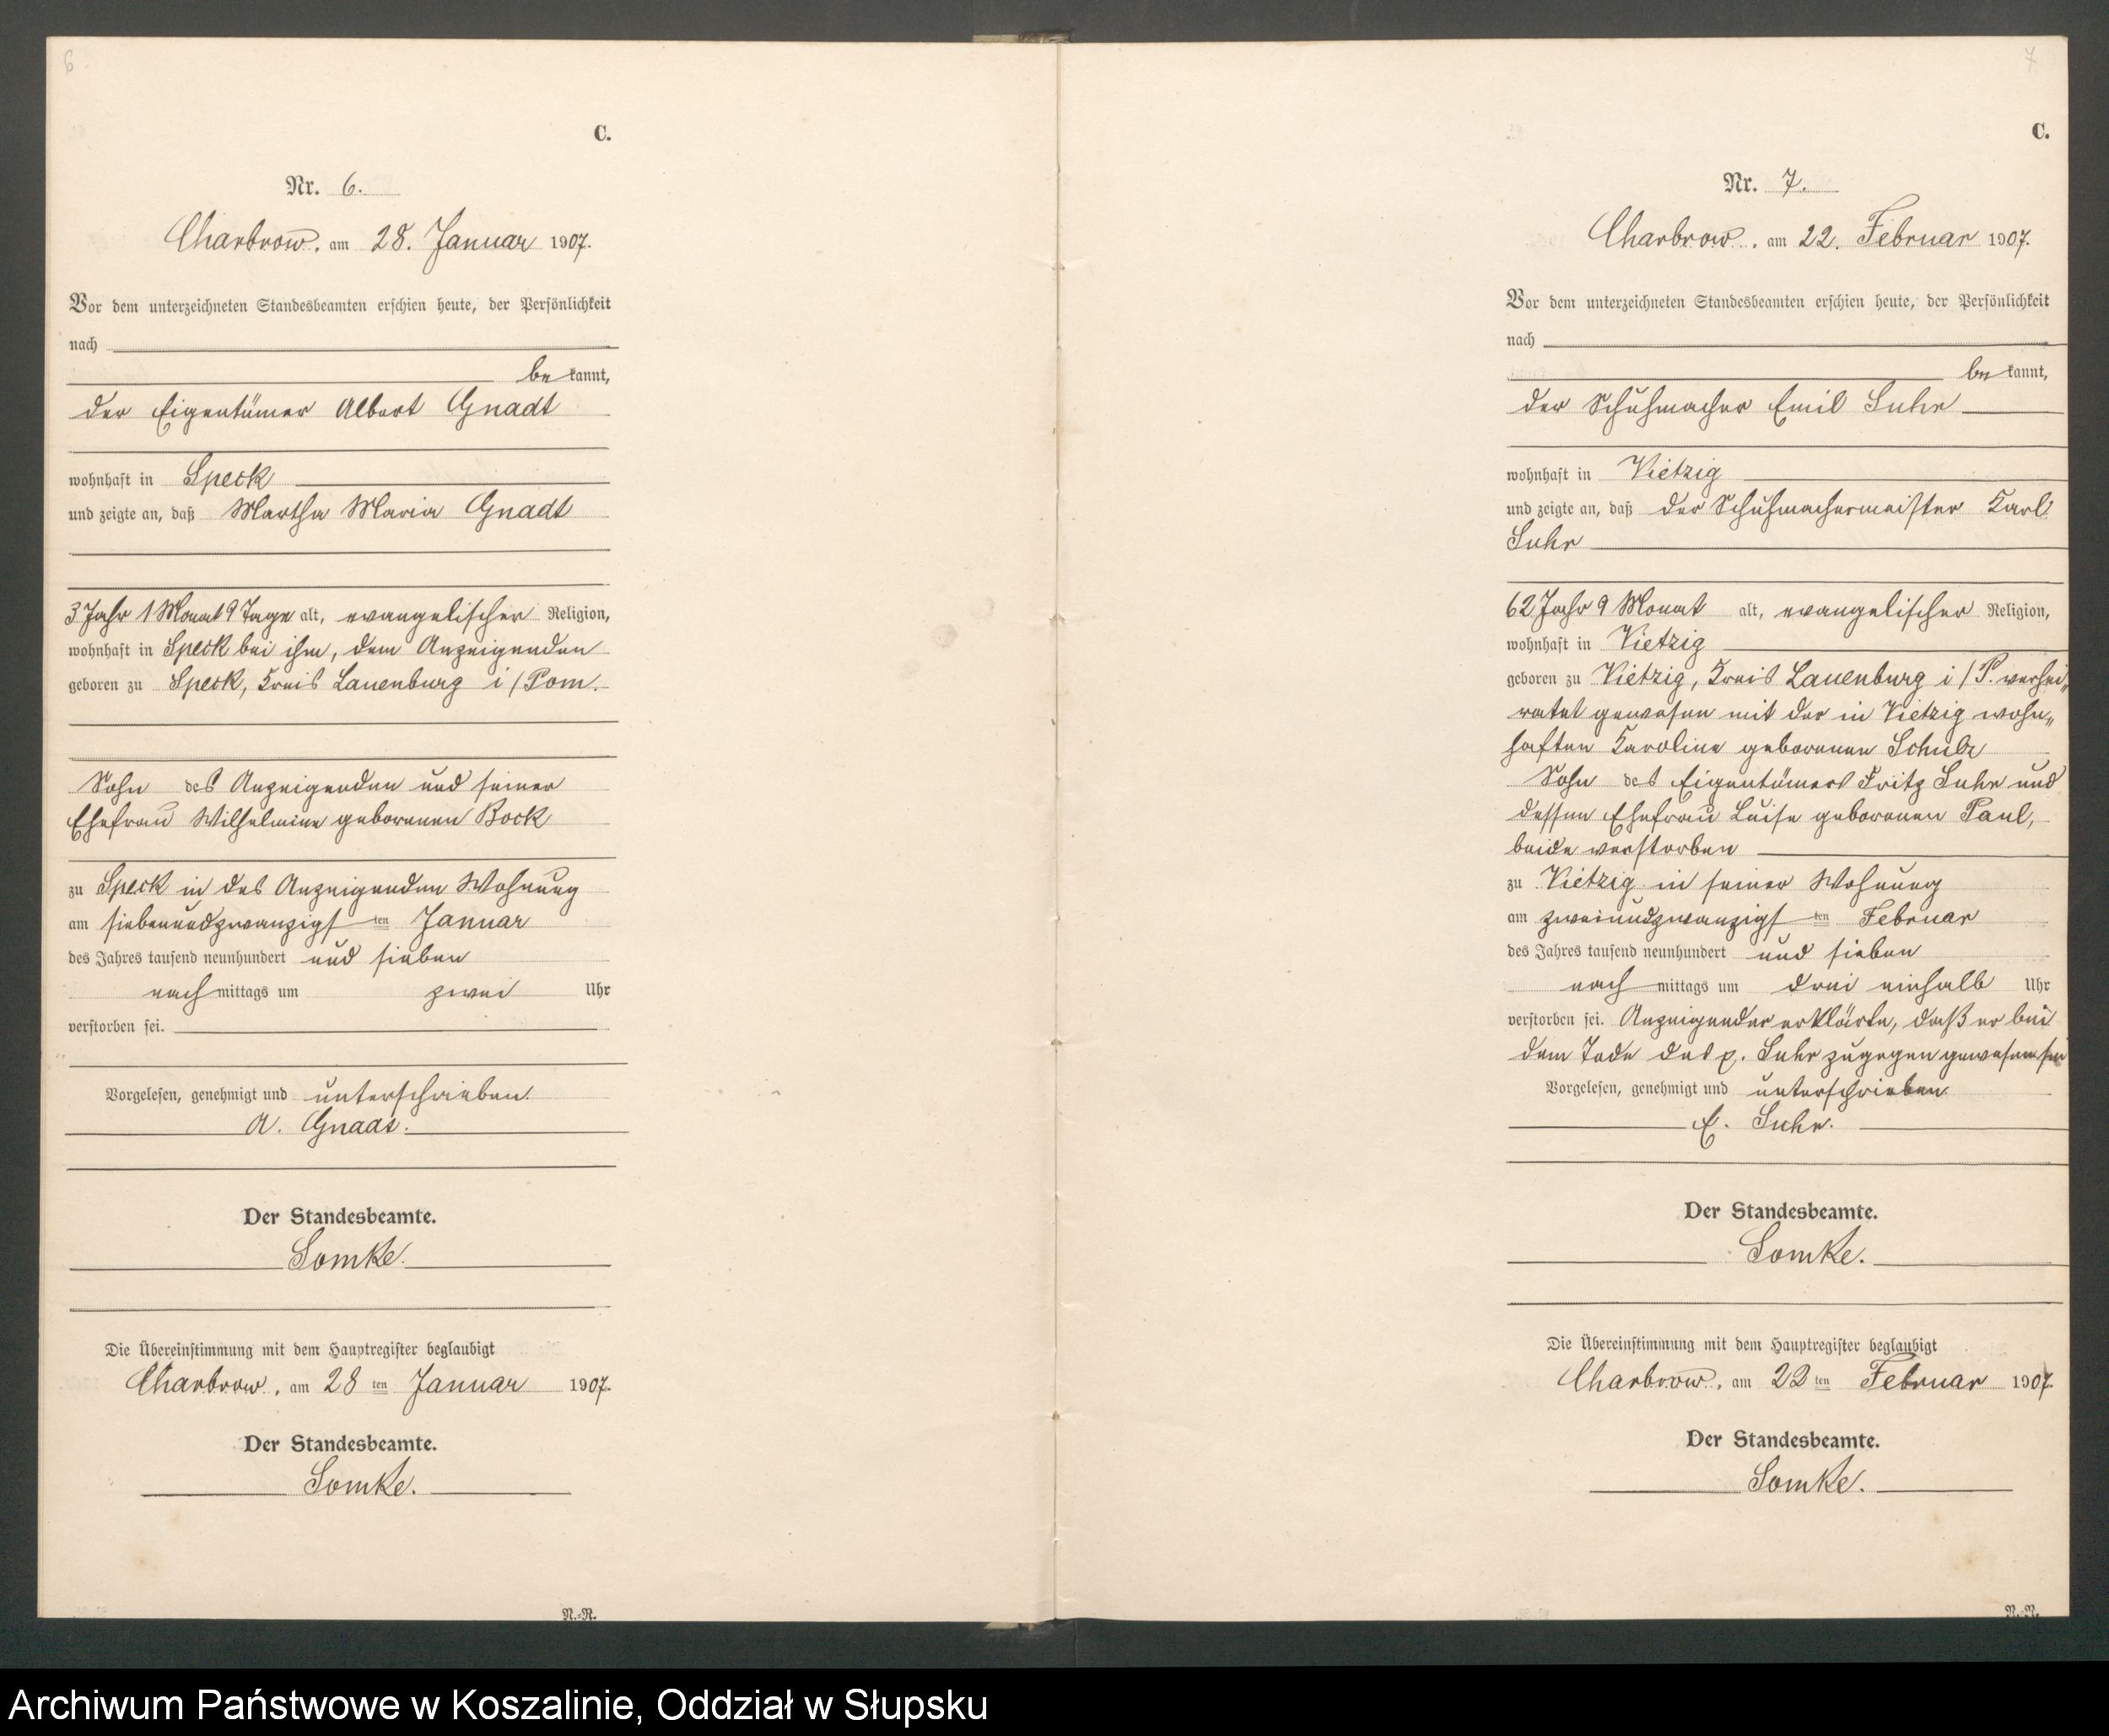 6
C.
Nr. 6.
Charbrow, am 28. Januar 1907.
Vor dem unterzeichneten Standesbeamten erschien heute, der Persönlichkeit
nach
be kannt,
der Eigentümer Albert Gnadt
wohnhaft in Speck
und zeigte an, daß Martha Maria Gnadt
3 Jahr 1 Monat 9 Tage alt, evangelischer Religion,
wohnhaft in Speck bei ihm, dem Anzeigenden
geboren zu Speck, Kreis Lauenburg i/Pom.
Sohn des Anzeigenden und seiner
Ehefrau Wilhelmine geborenen Bock
zu Speck in des Anzeigenden Wohnung
am siebenundzwanzigsten Januar
des Jahres tausend neunhundert und sieben
nachmittags um zwei Uhr
verstorben sei.
Vorgelesen, genehmigt und unterschrieben.
A. Gnadt.
Der Standesbeamte.
Somke.
Die Übereinstimmung mit dem Hauptregister beglaubigt
Charbrow, am 28ten Januar 1907.
Der Standesbeamte.
Somke.
N.-R.
7
C.
Nr. 7.
Charbrow, am 22. Februar 1907.
Vor dem unterzeichneten Standesbeamten erschien heute, der Persönlichkeit
nach
be kannt,
der Schuhmacher Emil Suhr
wohnhaft in Vietzig
und zeigte an, daß der Schuhmachermeister Karl
Suhr
62 Jahr 9 Monat alt, evangelischer Religion,
wohnhaft in Vietzig
geboren zu Vietzig, Kreis Lauenburg i/P. verhei„
ratet gewesen mit der in Vietzig wohn„
haften Karoline geborenen Schulz
Sohn des Eigentümers Fritz Suhr und
dessen Ehefrau Luise geborenen Paul,
beide verstorben
zu Vietzig in seiner Wohnung
am zweiundzwanzigsten Februar
des Jahres tausend neunhundert und sieben
nach mittags um drei einhalb Uhr
verstorben sei. Anzeigender erklärte, daß er bei
dem Tode des p. Suhr zugegen gewesen sei
Vorgelesen, genehmigt und unterschrieben
E. Suhr.
Der Standesbeamte.
Somke.
Die Übereinstimmung mit dem Hauptregister beglaubigt
Charbrow, am 22ten Februar 1907.
Der Standesbeamte.
Somke.
N.-R.
Archiwum Państwowe w Koszalinie, Oddział w Słupsku